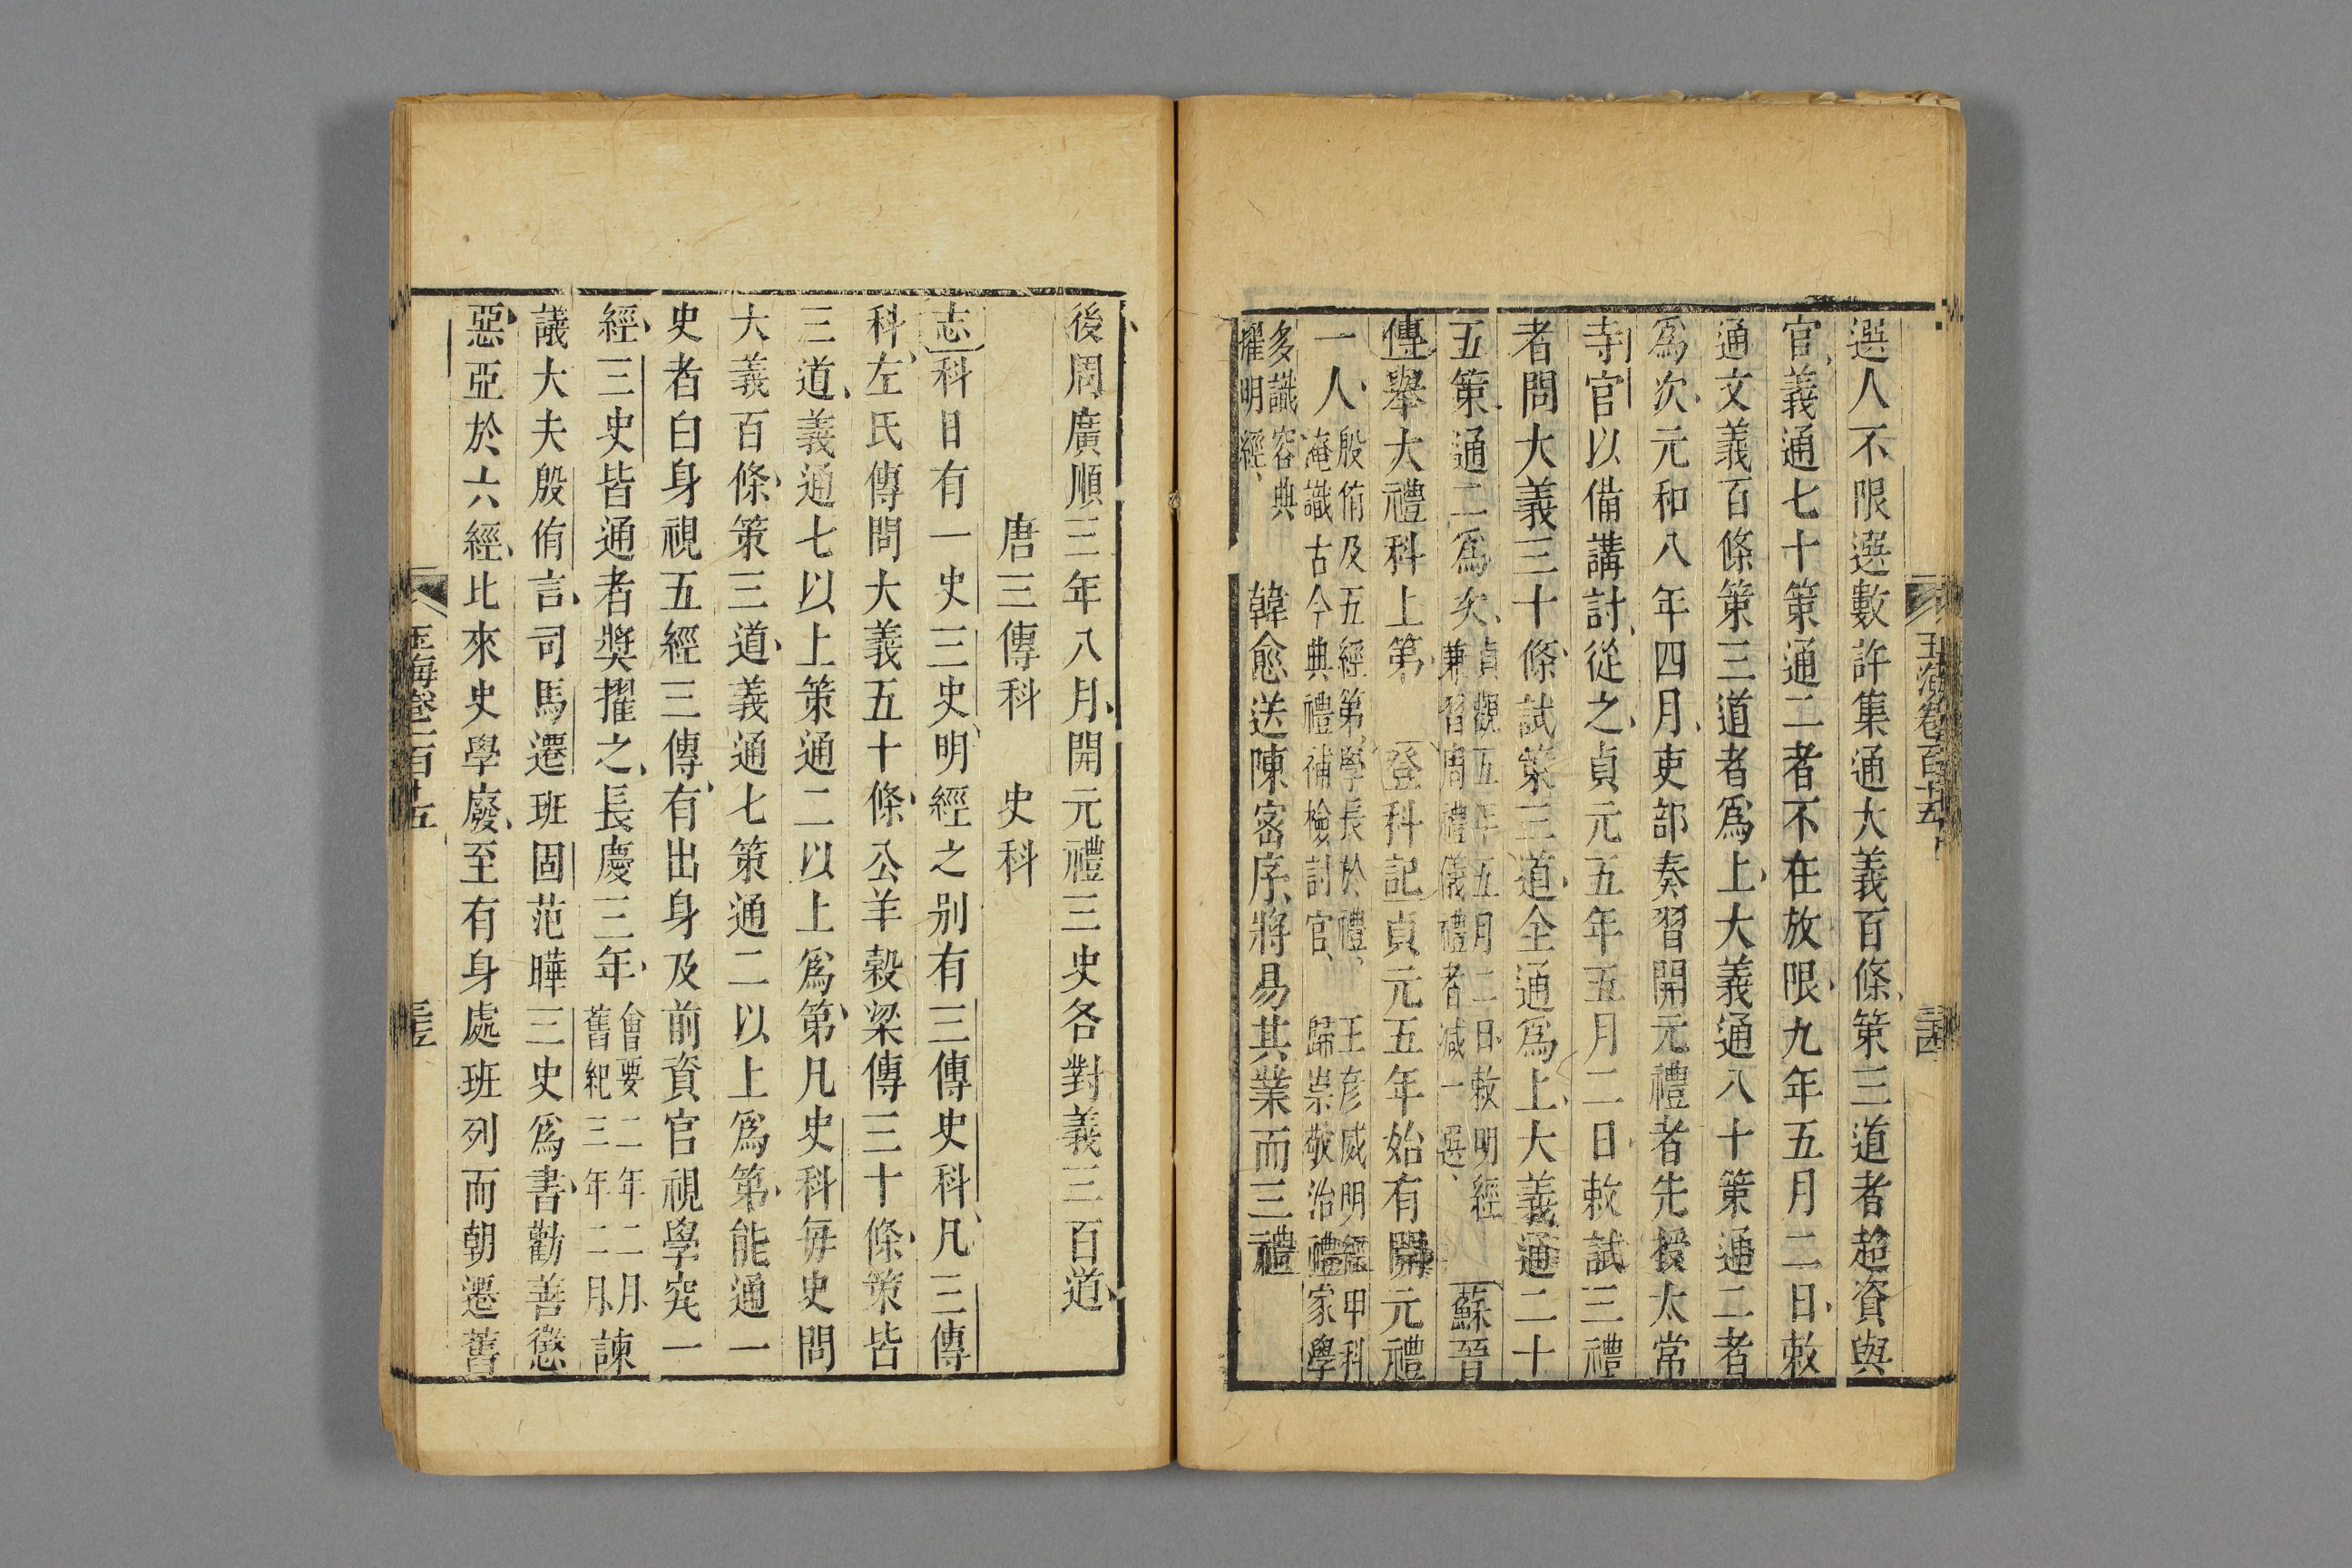 選人不限選數許集通大義百條策三道者超資與
官義通七十策通二者不在放限九年五月二日敕
通文義百條策三道者爲上大義通八十策通二者
爲次元和八年四月吏部奏習開元禮者先授太常
寺官以備講討從之貞元五年五月二日敕試三禮
者問大義三十條試策三道全通爲上大義通二十
五策通二爲次貞觀五年五月二日敕明經兼習周禮儀禮者減一選蘇晉
傳舉大禮科上第登科記貞元五年始有開元禮
一人殷侑及五經第學長於禮淹識古今典禮補檢討官王彦威明經甲科歸崇敬治禮家學
多識容典擢明經韓愈送陳密序將易其業而三禮
玉海卷百十五
後周廣順三年八月開元禮三史各對義三百道
唐三傳科 史科
志科目有一史三史明經之别有三傳史科凡三傳
科左氏傳問大義五十條公羊穀梁傳三十條策皆
三道義通七以上策通二以上爲第凡史科毎史問
大義百條策三道義通七策通二以上爲第能通一
史者白身視五經三傳有出身及前資官視學究一
經三史皆通者獎擢之長慶三年會要二年二月舊紀三年二月諫
議大夫殷侑言司馬遷班固范曄三史爲書勸善懲
惡亞於六經比來史學廢至有身處班列而朝遷舊
玉海卷一百十五